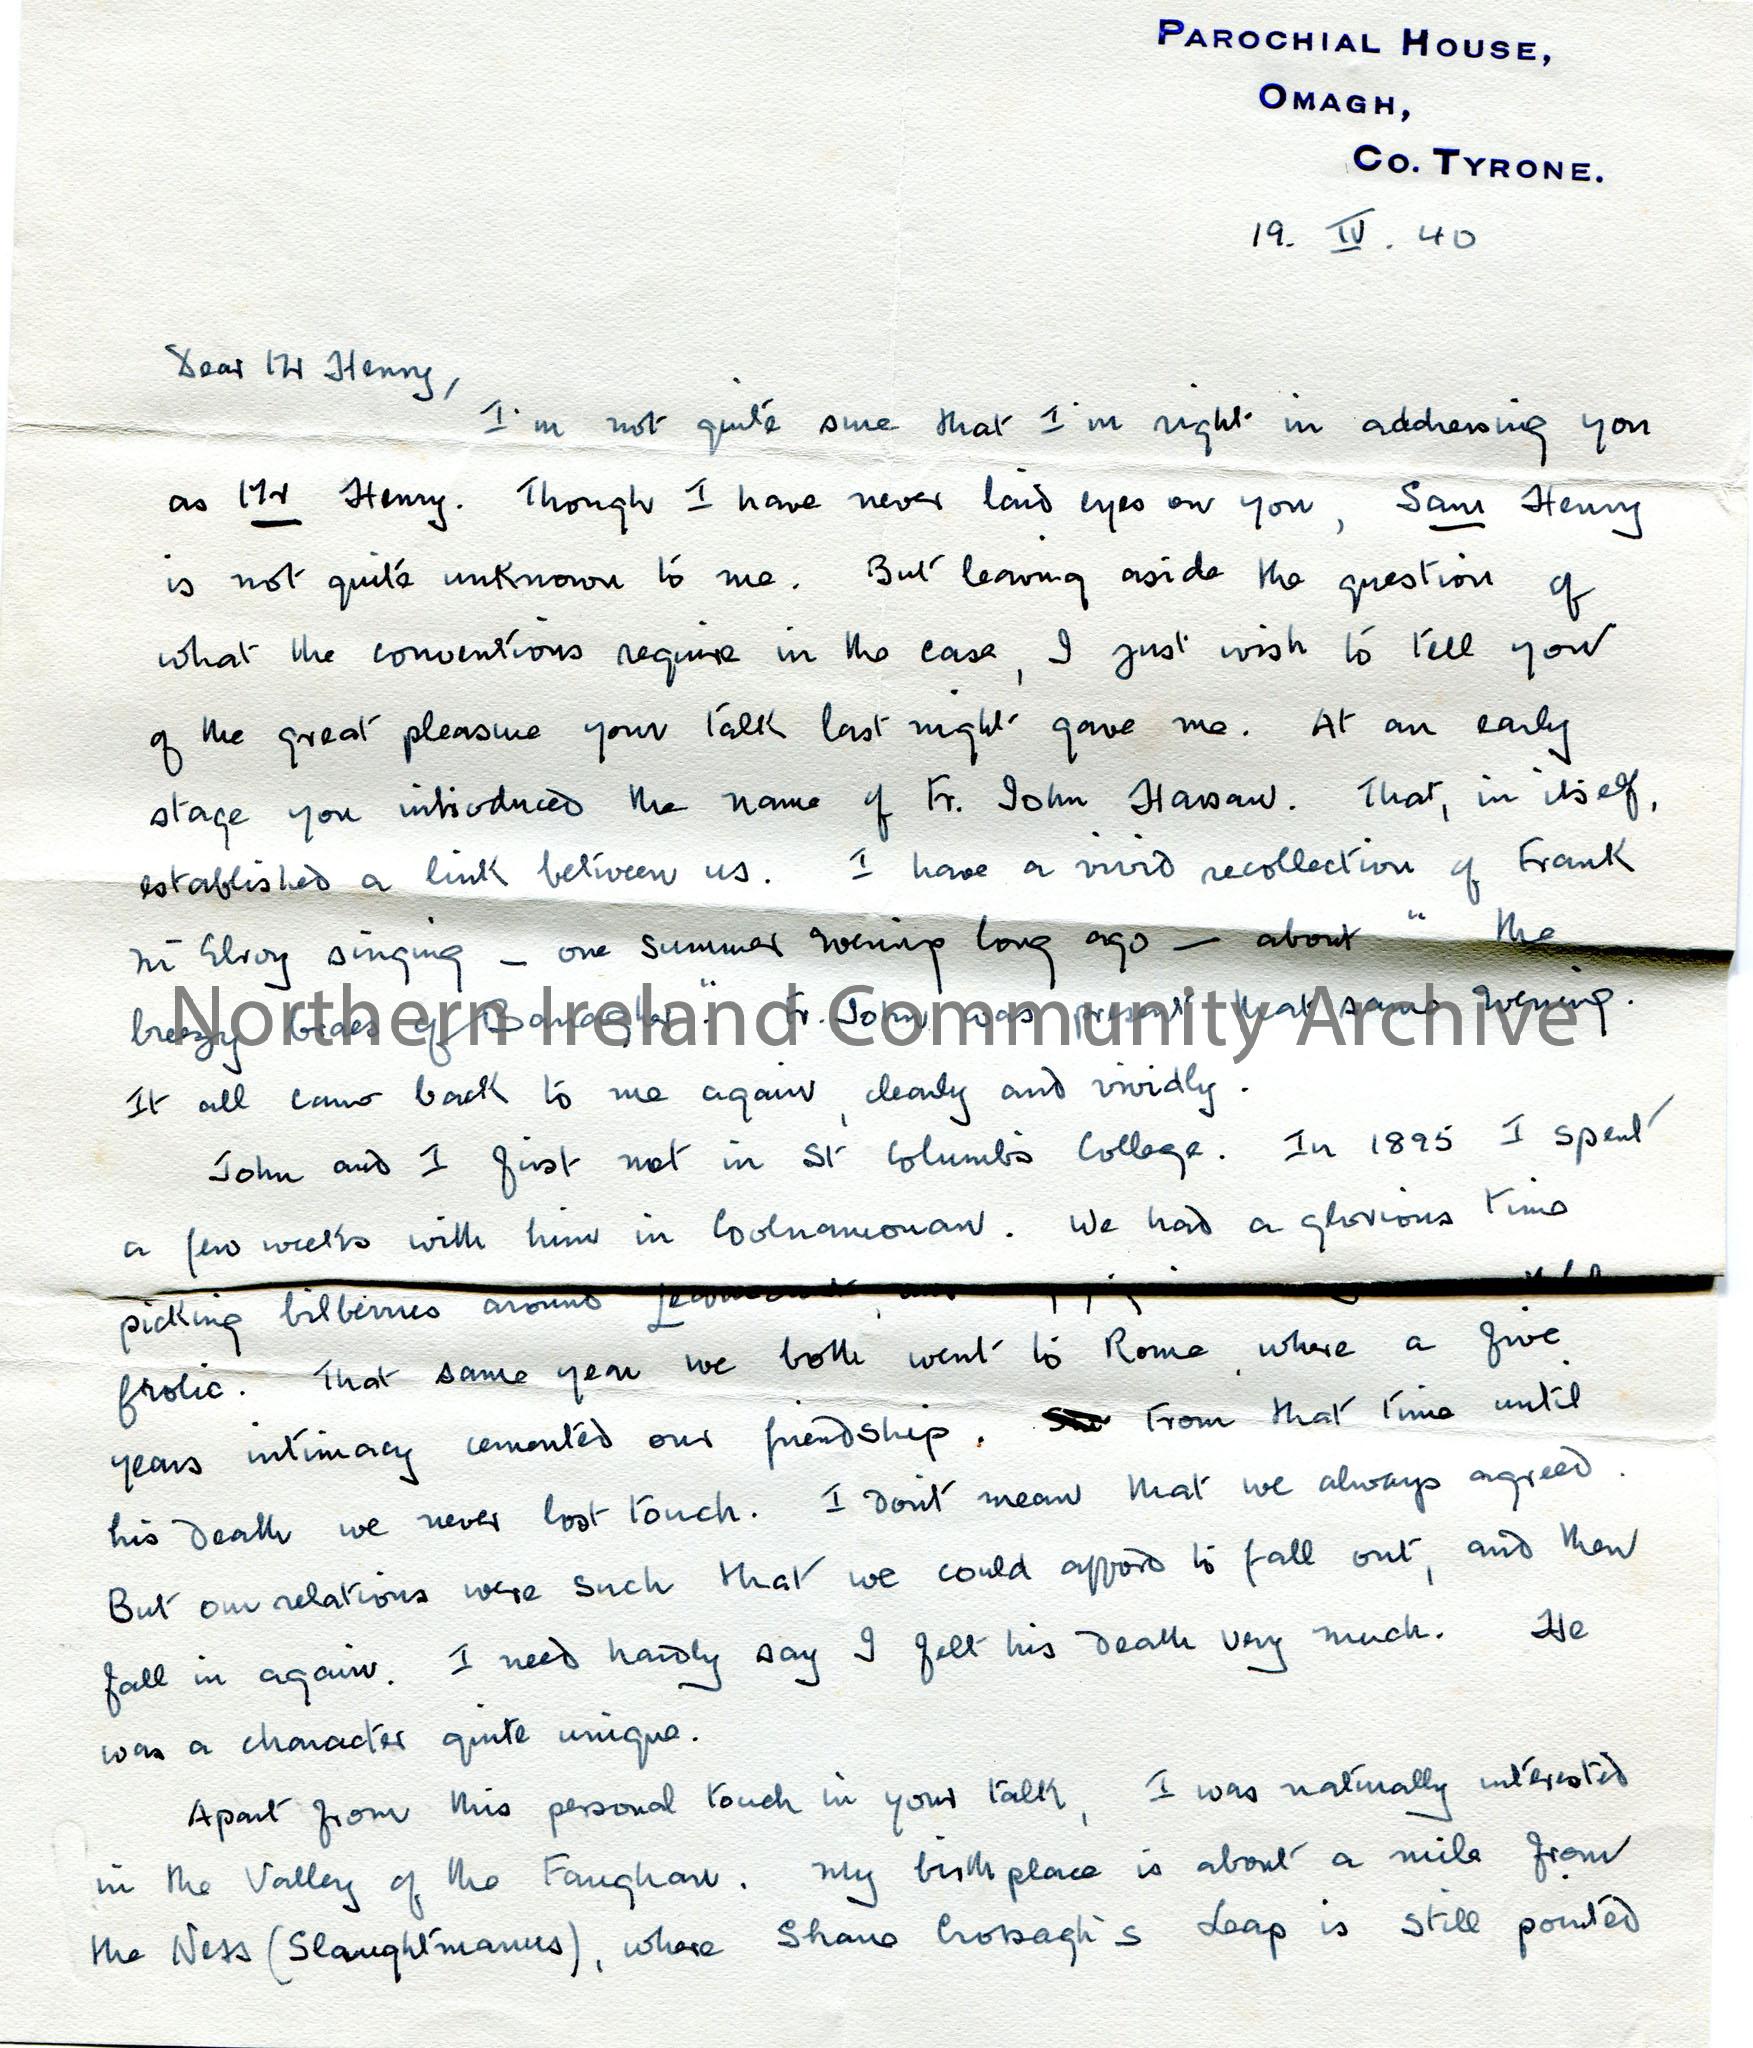 PAROCHIAL HOUSE,
OMAGH,
CO. TYRONE.
19. IV. 40
Dear Mr Henry,
I'm not quite sure that I'm right in addressing you
as Mr Henry. Though I have never laid eyes on you, Sam Henry
is not quite unknown to me. But leaving aside the question of
what the conventions require in the case, I just wish to tell you
of the great pleasure your talk last night gave me. At an early
stage you introduced the name of Fr. John Hassan. That, in itself,
established a link between us. I have a vivid recollection of Frank
McElroy singing – one summer evening long ago – about "the
breezy braes of Banagher." Fr. John was present that same evening.
Northern Ireland Community Archive
It all came back to me again, clearly and vividly.
John and I first met in St Columb's College. In 1895 I spent
a few weeks with him in Coolnamonan. We had a glorious time
picking bilberries around
frolic. That same year we both went to Rome where a five
years intimacy cemented our friendship. From that time until
his death we never lost touch. I don't mean that we always agreed.
But our relations were such that we could afford to fall out, and then
fall in again. I need hardly say I felt his death very much. He
was a character quite unique.
Apart from this personal touch in your talk, I was naturally interested
in the Valley of the Faughan. My birthplace is about a mile from
the Ness (Slaughtmanus), where Shane Crossagh's Leap is still pointed